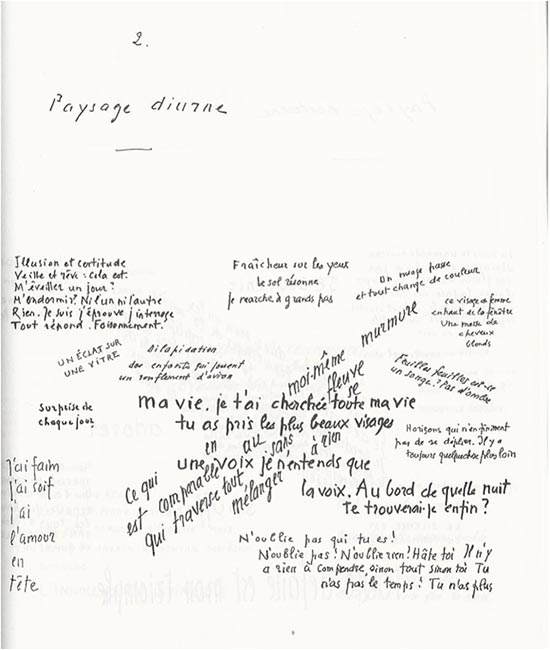 2.
Paysage diurne
Illusion et certitude
Veille et rêve : Cela est.
M'éveiller un jour ?
M'endormir ? Ni l'un ni l'autre
Rien. Je suis j'éprouve j'interroge
Tout répond. Foisonnement.
Fraîcheur sur les yeux
le sol résonne
je marche à grands pas
Un nuage passe
et tout change de couleur
ce visage de femme
en haut de la fenêtre
Une masse de
cheveux
blonds
UN ÉCLAT SUR
UNE VITRE
Dilapidation
des enfants qui jouent
un ronflement d'avion
Feuilles feuilles est-ce
un songe ? Pas d'ombre
Surprise de
chaque jour
Ce qui en moi-même murmure
est comparable au fleuve
qui traverse tout sans se
mélanger à rien
ma vie. je t'ai cherchée toute ma vie
tu as pris les plus beaux visages
une voix je n'entends que
la voix. Au bord de quelle nuit
te trouverai-je enfin ?
Horizons qui n'en finissent
pas de se déplier. Il y a
toujours quelque chose plus loin
j'ai faim
j'ai soif
j'ai
l'amour
en
tête
N'oublie pas qui tu es !
N'oublie pas ! N'oublie rien ! Hâte toi Il n'y
a rien à comprendre, sinon tout sinon toi Tu
n'as pas le temps ! Tu n'as plus